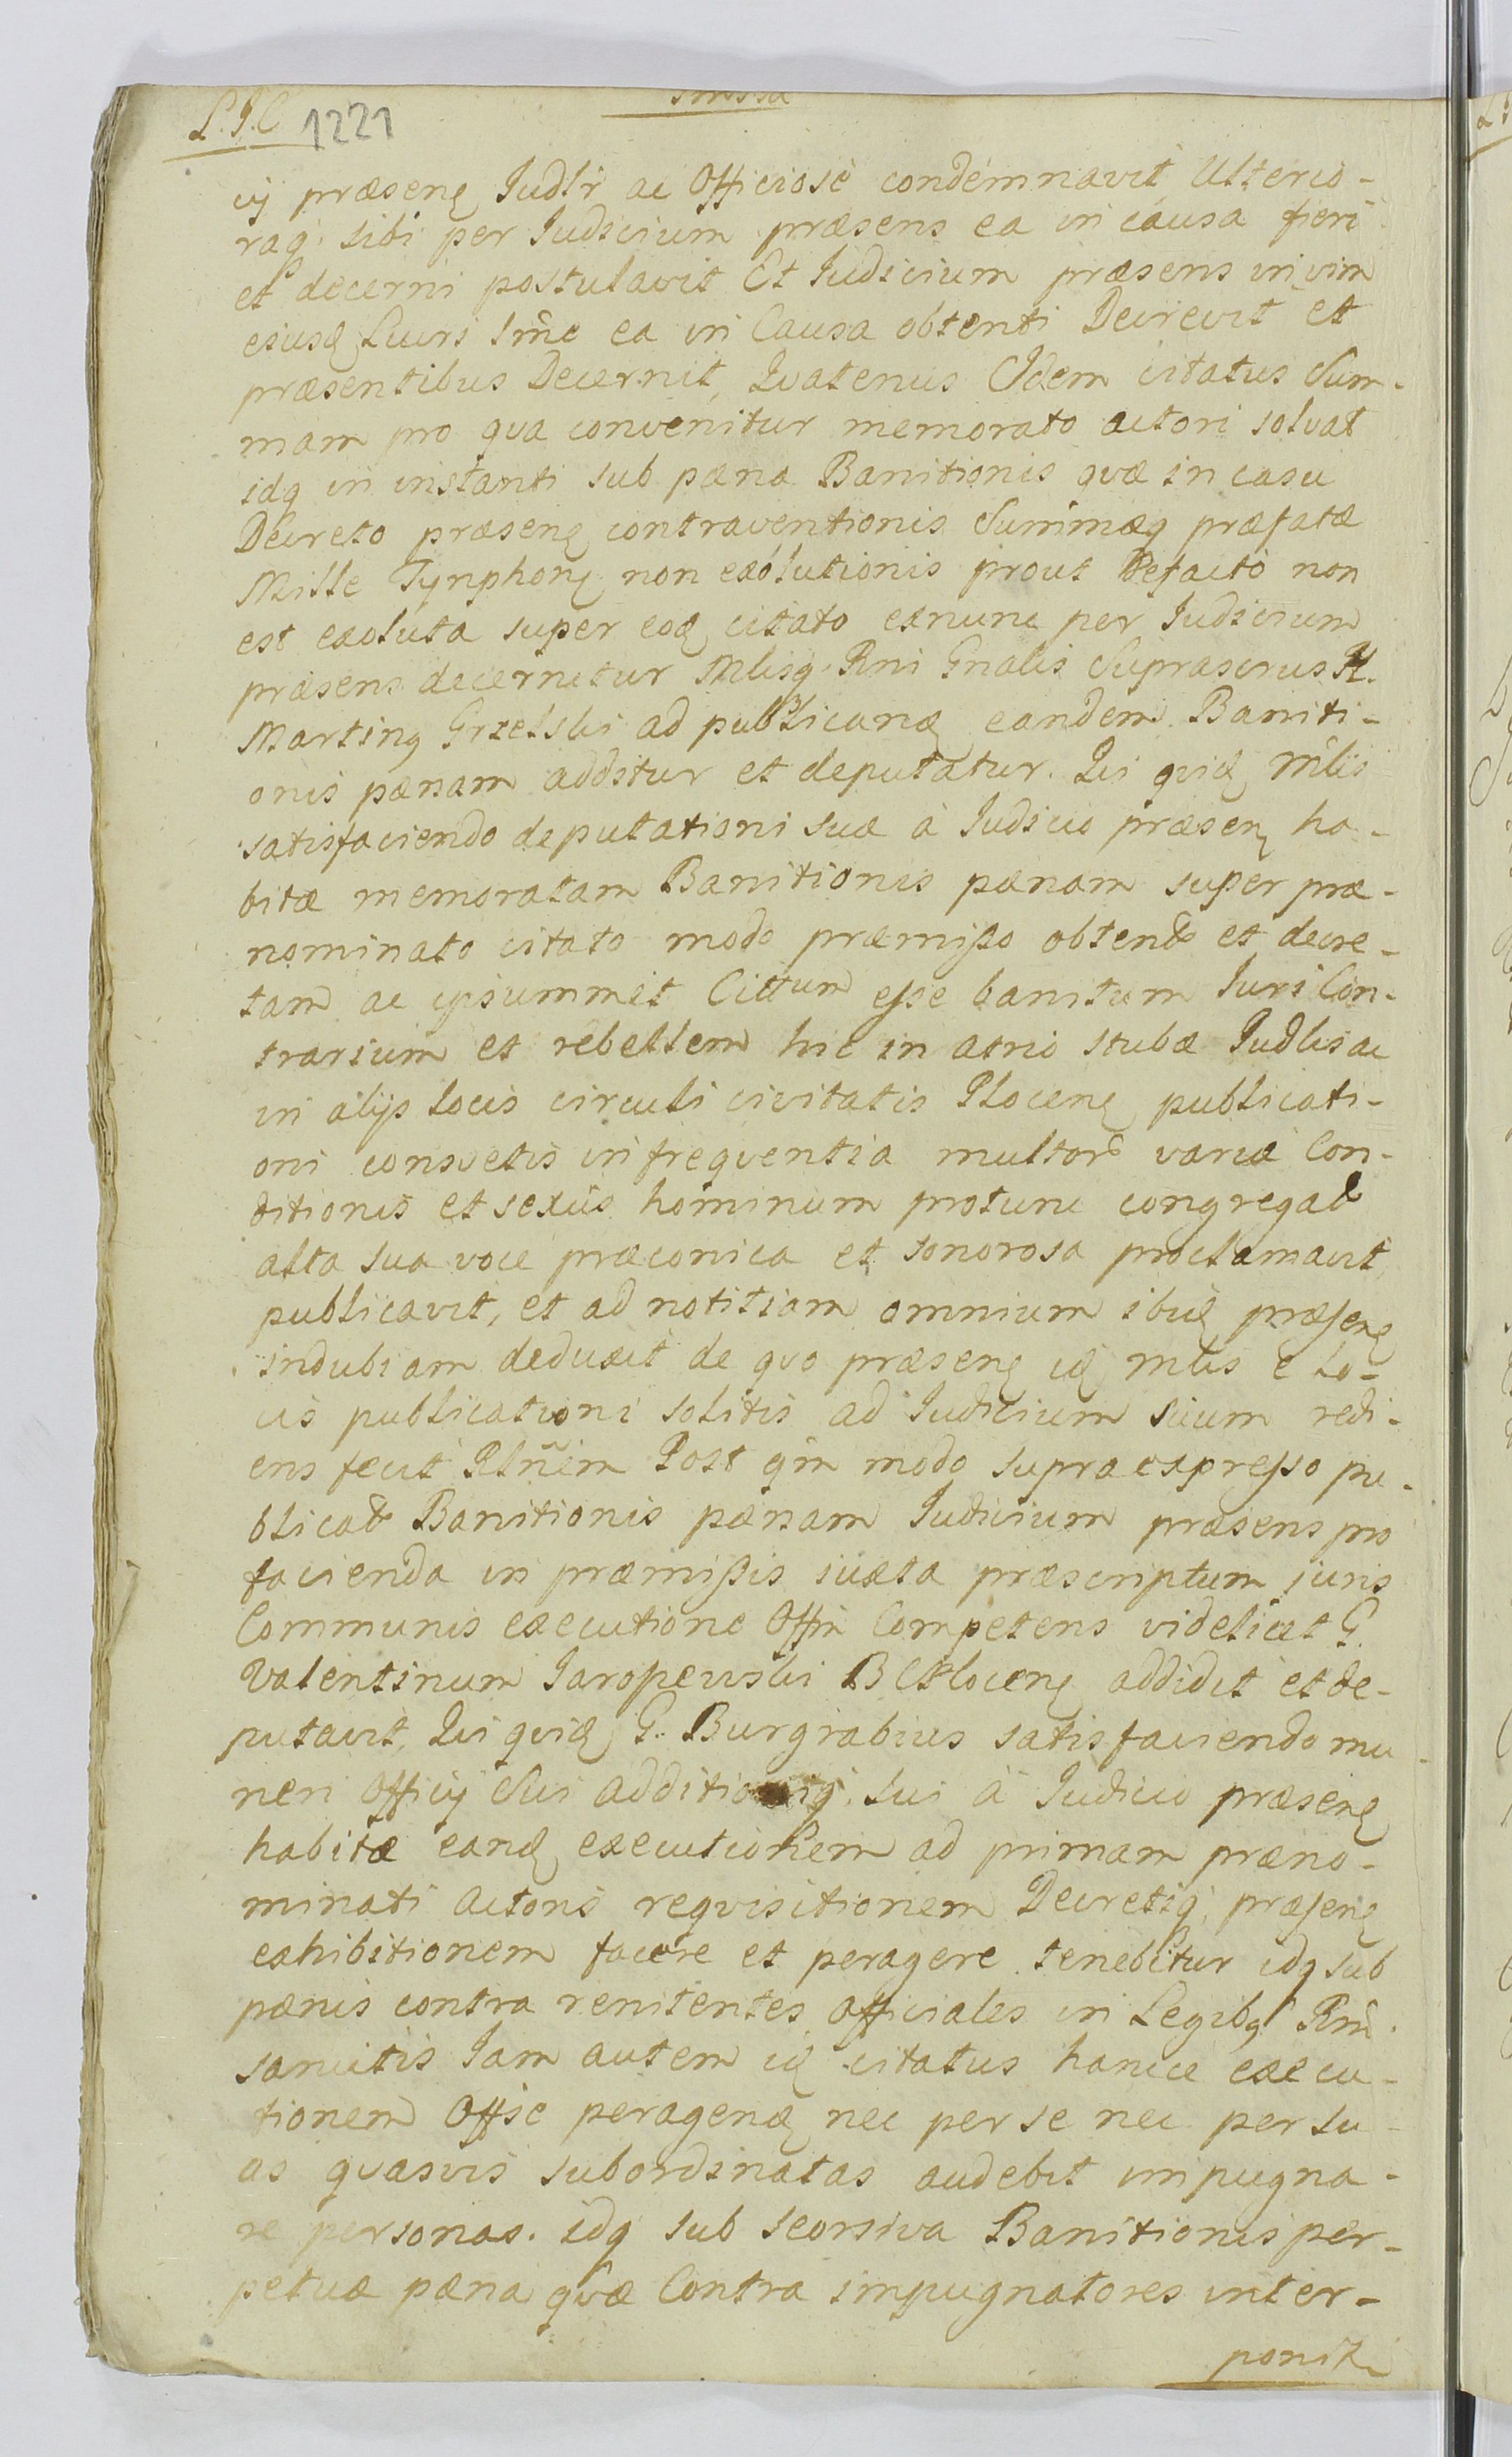 L. J. C 1221
cij præsenę Judlr ac Officiose condemnavit Ulterio-
raq. sibi per Iudicium præsens ea in causa fieri
et decerni postulavit Et Iudicium præsens in vim
eiusd Lucri Smc ea in Causa obtenti Decrevit et
præsentibus Decernit, Qvatenus Idem citatus Sum-
mam pro qva convenitur memorato actori solvat
idq in instanti sub pæna Banitionis qvæ in casu
Decreto præsenę contraventionis Summæq præfatæ
Mille Tynphonę non exolutionis prout Defacto non
est exoluta super eod citato exnunc per Iudicium
præsens decernitur Mlisq. Rni Gnalis Suprascrus H.
Martinq Grzelski ad publicand eandem Baniti-
onis pænam additur et deputatur. Qui qvid Mlis
satisfaciendo deputationi suæ à Iudicio præsenę ha-
bitæ memoratam Banitionis pænam super præ-
nominato citato modo præmißo obtent et decre-
tam ac ipsummet Cittum eße banitum Iuri Con-
trarium et rebellem hic in atrio stubæ Iudlis ac
in alijs locis circuli civitatis Plocenę publicati-
oni consvetis in freqventia multor variæ Con-
ditionis et sexûs hominum protunc congregat
alta sua voce præconica et sonorosa proclamavit,
publicavit, et ad notitiam omnium ibid præsenę
indubiam deduxit de qvo præsenę id Mlis e lo-
cis publicationi solitis ad Iudicium suum redi-
ens fecit Rlnem Post qm modo supraexpreßo pu-
blicat Banitionis pænam Iudicium præsens pro
facienda in præmißis iuxta præscriptum juris
Communis executione Offm Competens videlicet G.
Valentinum Jaropewski B C Plocenę addidit et de-
putavit, Qui qvid G. Burgrabius satisfaciendo mu-
neri Officij Sui additioniq. sui à Iudicio præsenę
habitæ eand executionem ad primam præno-
minati Actoris reqvisitionem Decretiq. præsenę
exhibitionem facere et peragere tenebitur idq sub
pænis contra renitentes officiales in Legibq Rni.
sancitis Iam autem id citatus hance execu-
tionem Offse peragend nec per se nec per su-
as qvasvis subordinatas audebit impugna-
re personas. idq sub seorsiva Banitionis per-
petuæ pæna qvæ Contra impugnatores inter-
ponit